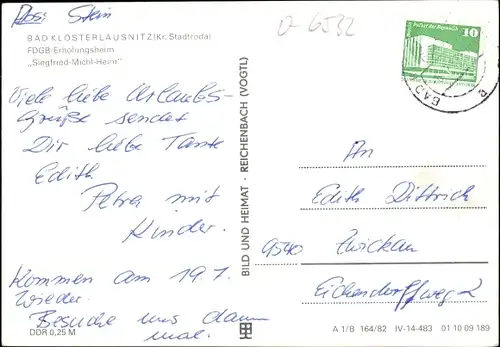 Abs: Stein
o-6532
BAD KLOSTERLAUSNITZ (Kr. Stadtroda)
FDGB-Erholungsheim
„Siegfried-Michl-Heim"
Viele liebe Urlaubs-
Grüße sendet
Dir liebe Tante
Edith
Petra mit
Kinder.
Kommen am 19.7.
wieder.
Besuche uns dann
mal.
DDR 0,25 M
BILD UND HEIMAT · REICHENBACH (VOGTL)
Palast der Republik
10
BAD
An
Edith Dittrich
9540 Zwickau
Eichendorffweg 2
A 1/B 164/82 IV-14-483 01 10 09 189